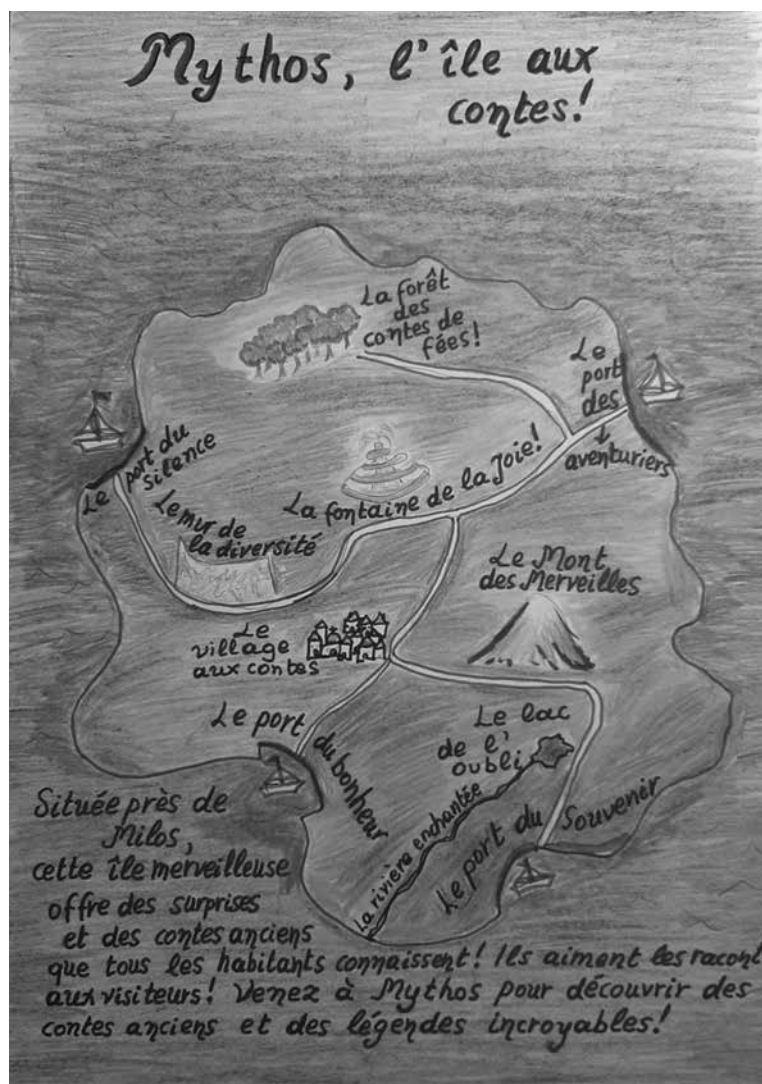 Mythos, l'île aux
contes!
La forêt
des
contes de
fées!
Le
port
des
aventuriers
Le port du
silence
La fontaine de la Joie!
Le mur de
la diversité
Le Mont
des Merveilles
Le
village
aux contes
Le port du bonheur
Le lac
de l'
oubli
La rivière enchantée
Le port du Souvenir
Située près de
Milos,
cette île merveilleuse
offre des surprises
et des contes anciens
que tous les habitants connaissent! Ils aiment les racont
aux visiteurs! Venez à Mythos pour découvrir des
contes anciens et des légendes incroyables!